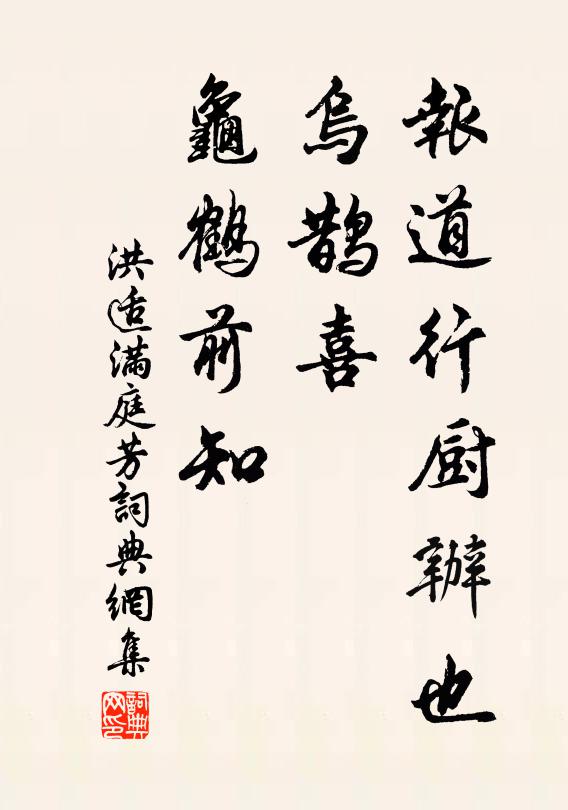 報道行厨辦也
烏鵲喜
龜鶴前知
洪适滿庭芳詞典網集
詞典网印